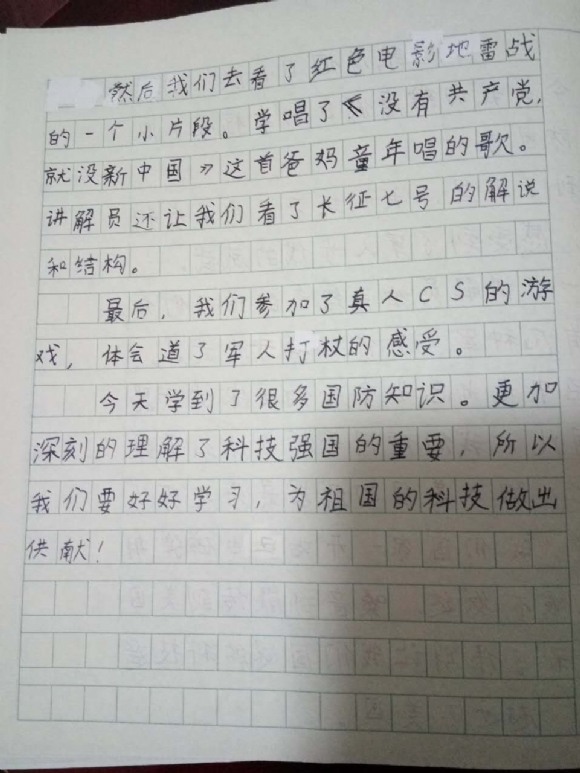 然后我们去看了红色电影地雷战
的一个小片段。学唱了《没有共产党,
就没新中国》这首爸妈童年唱的歌。
讲解员还让我们看了长征七号的解说
和结构。
最后,我们参加了真人CS的游
戏,体会道了军人打杖的感受。
今天学到了很多国防知识。更加
深刻的理解了科技强国的重要,所以
我们要好好学习,为祖国的科技做出
供献!